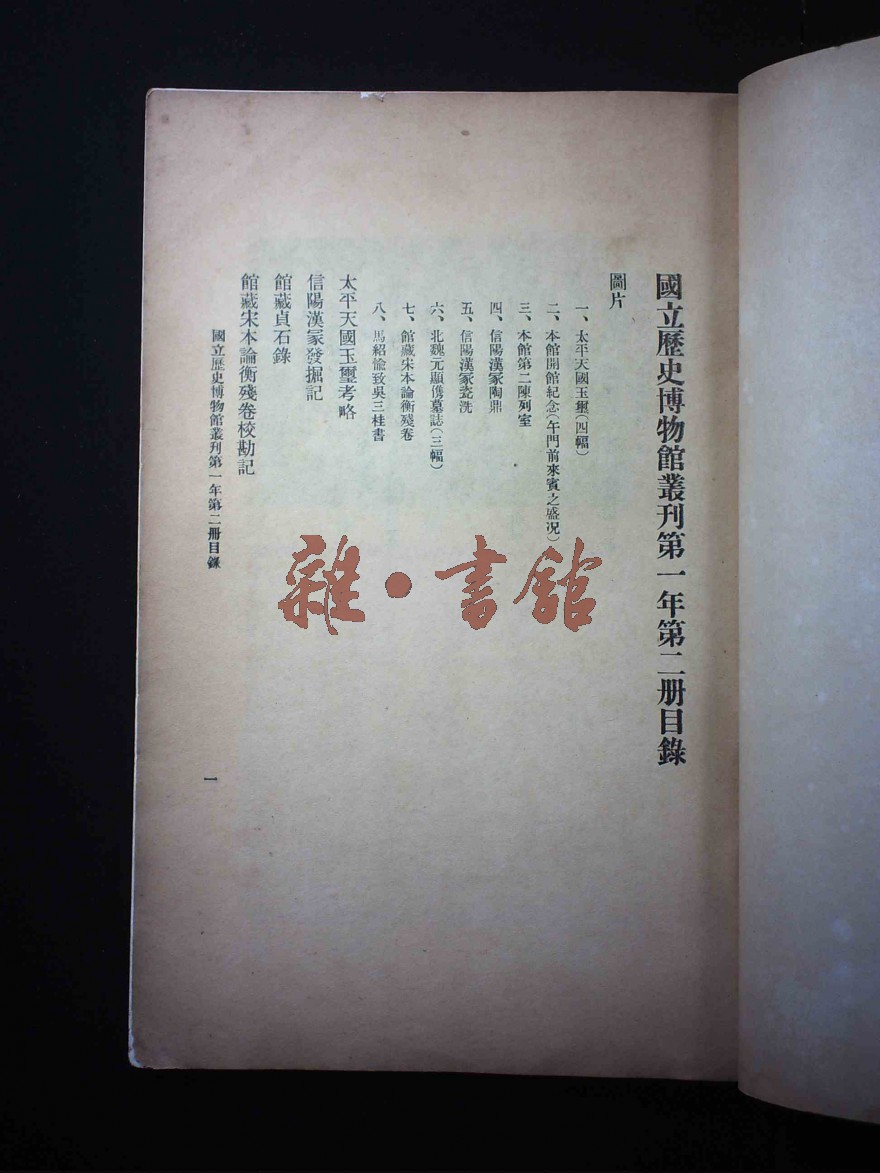 國立歷史博物館叢刊第一年第二册目錄
圖片
一、太平天國玉璽(四幅)
二、本館開館紀念(午門前來賓之盛况)
三、本館第二陳列室
四、信陽漢冢陶鼎
五、信陽漢冢瓷洗
六、北魏元顯儁墓誌(三幅)
七、館藏宋本論衡殘卷
八、馬紹愉致吳三桂書
太平天國玉璽考略
信陽漢冢發掘記
館藏貞石錄
館藏宋本論衡殘卷校勘記
國立歷史博物館叢刊第一年第二册目錄
一
雜·書館